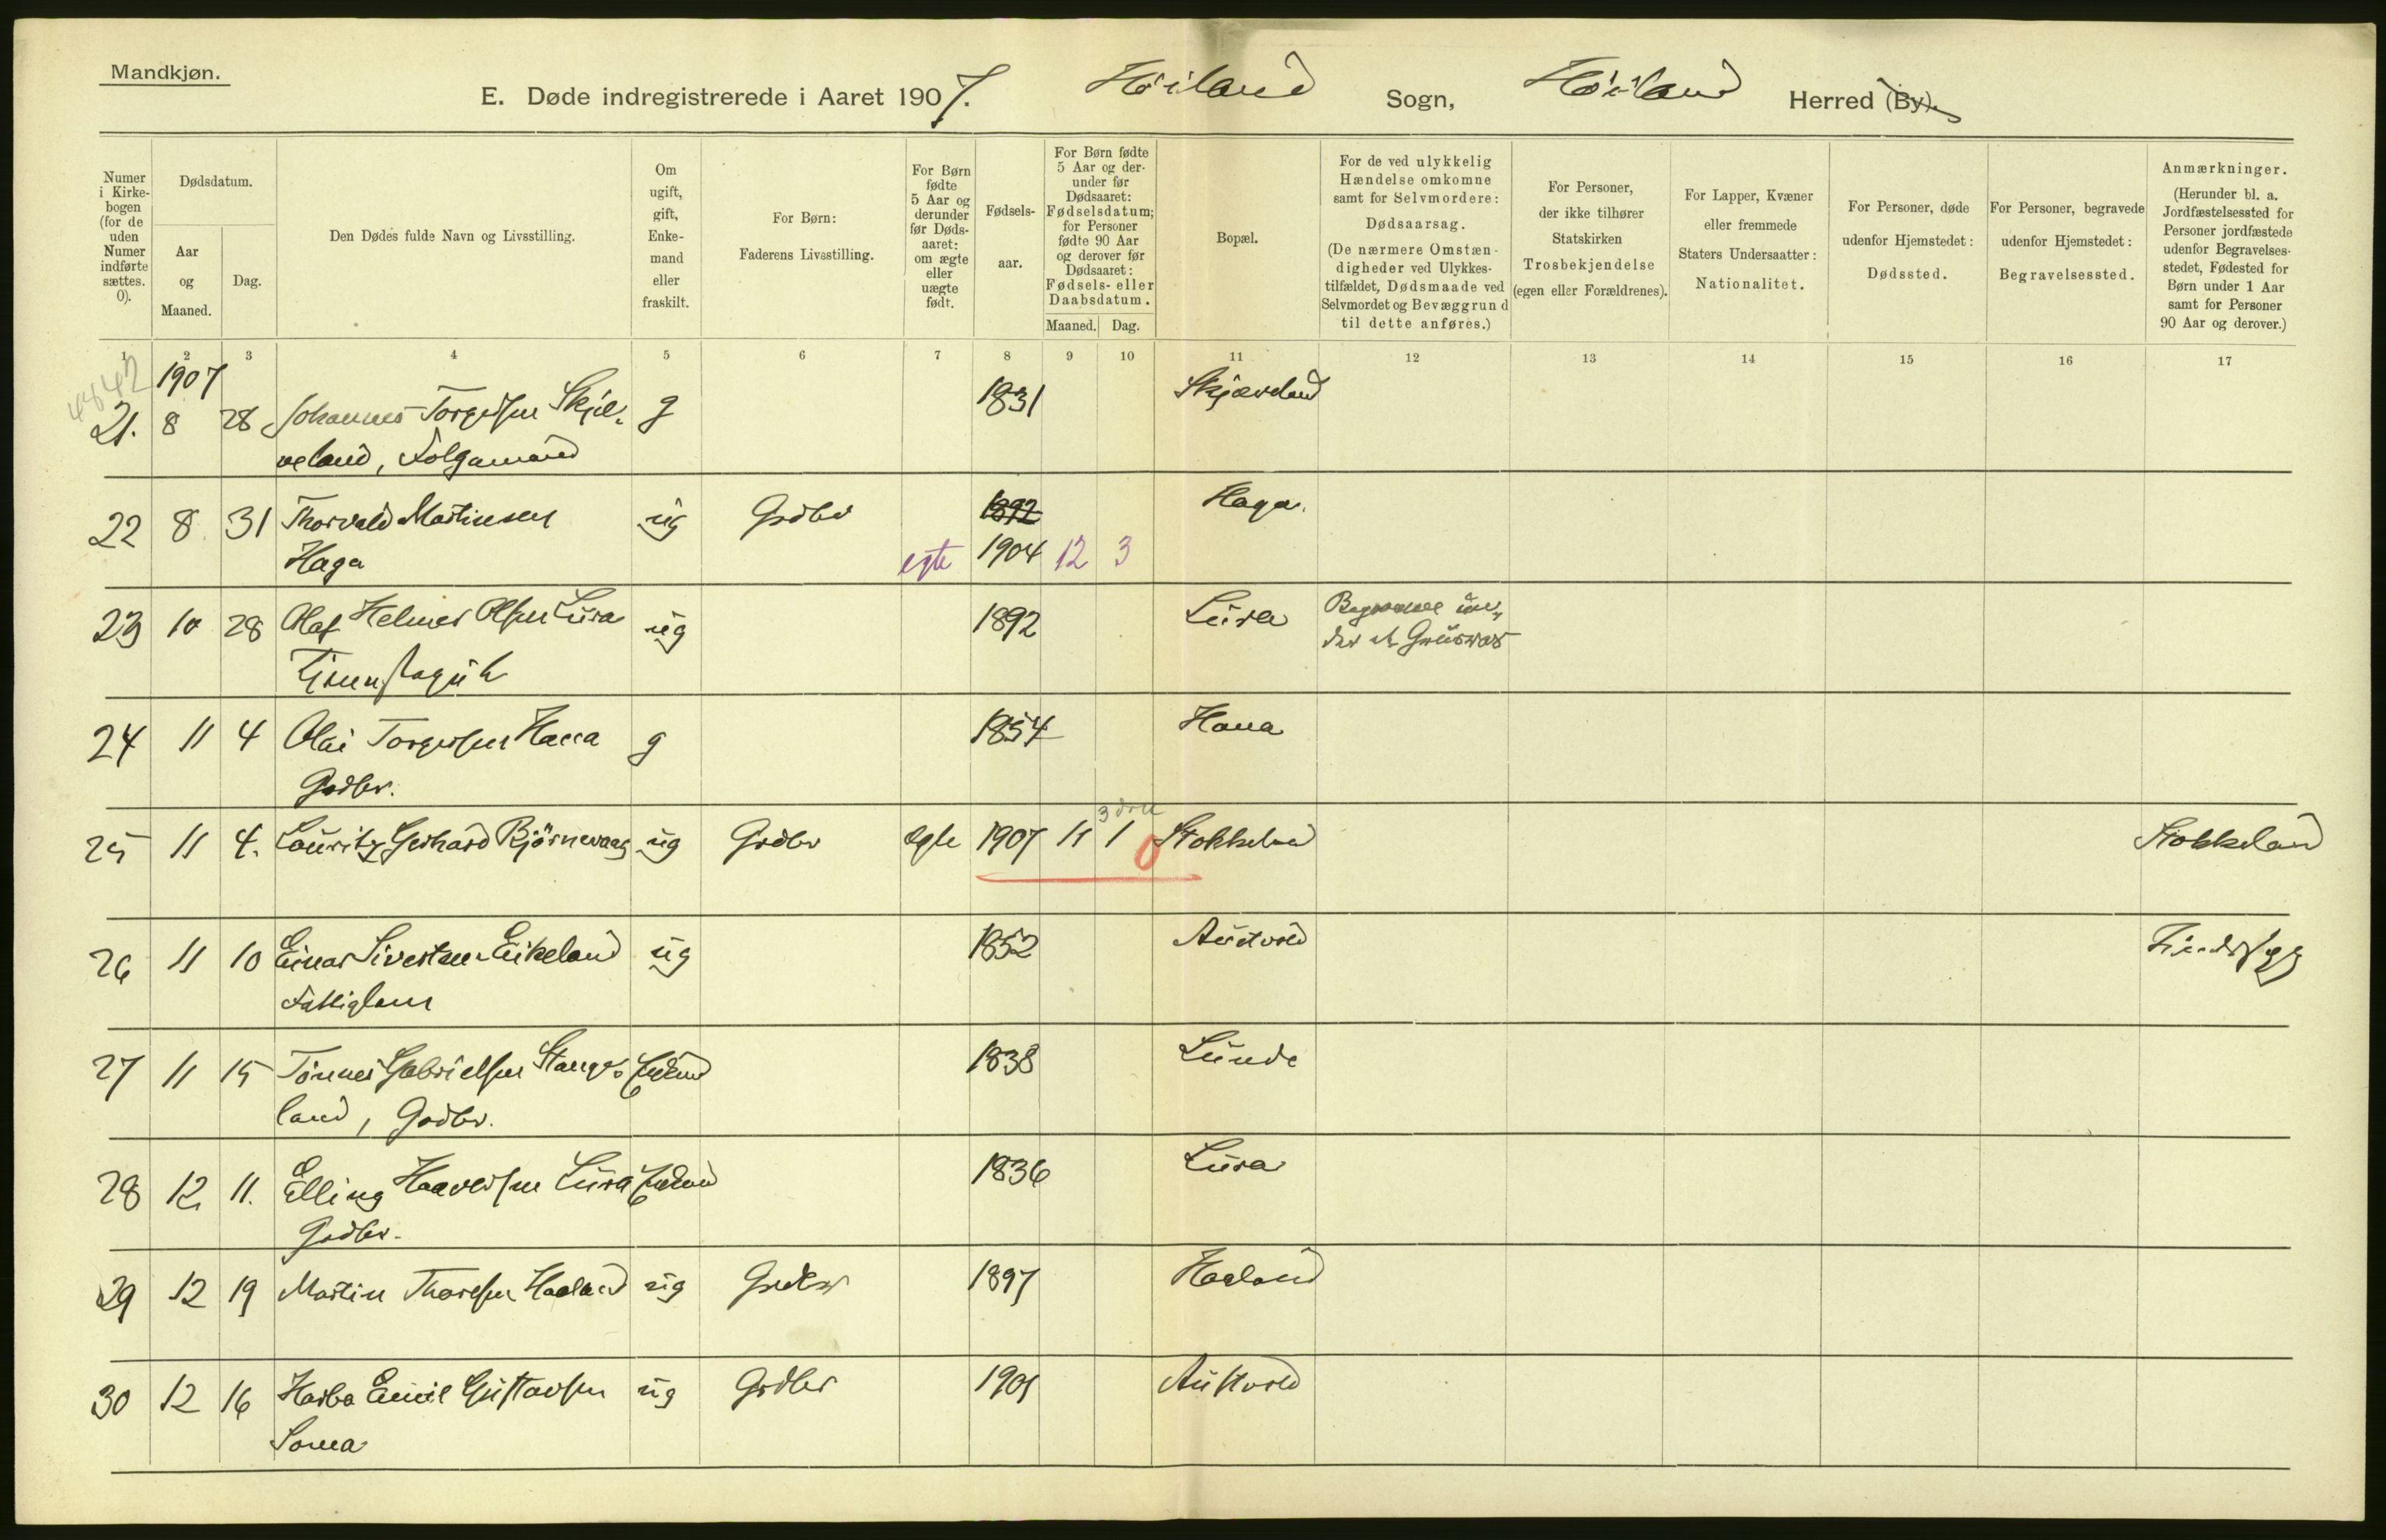 Mandkjøn.
E. Døde indregistrerede i Aaret 1907. Höiland Sogn, Höiland Herred (By).
Numer i Kirke-bogen (for de uden Numer indførte sættes. 0).
Dødsdatum.
Aar og Maaned.
Dag.
Den Dødes fulde Navn og Livsstilling.
Om ugift, gift, Enke-mand eller fraskilt.
For Børn: Faderens Livsstilling.
For Børn fødte 5 Aar og derunder før Døds-aaret: om ægte eller uægte født.
Fødsels-aar.
For Børn fødte 5 Aar og der-under før Dødsaaret: Fødselsdatum; for Personer fødte 90 Aar og derover før Dødsaaret: Fødsels- eller Daabsdatum.
Maaned. Dag.
Bopæl.
For de ved ulykkelig Hændelse omkomne samt for Selvmordere: Dødsaarsag. (De nærmere Omstæn-digheder ved Ulykkes-tilfældet, Dødsmaade ved Selvmordet og Bevæggrund til dette anføres.)
For Personer, der ikke tilhører Statskirken Trosbekjendelse (egen eller Forældrenes).
For Lapper, Kvæner eller fremmede Staters Undersaatter: Nationalitet.
For Personer, døde udenfor Hjemstedet: Dødssted.
For Personer, begravede udenfor Hjemstedet: Begravelsessted.
Anmærkninger. (Herunder bl. a. Jordfæstelsessted for Personer jordfæstede udenfor Begravelses-stedet, Fødested for Børn under 1 Aar samt for Personer 90 Aar og derover.)
1 2 3 4 5 6 7 8 9 10 11 12 13 14 15 16 17
4842
1907
21. 8 28 Johannes Torgersen Skjæ- g 1831 Skjæveland
veland, Folgemand
22 8 31 Thorvald Martinsen ug Grdbr 1892 Haga.
Haga egte 1904 12 3
23 10 28 Olaf Helmer Olsen Lura ug 1892 Lura Begravet un-
der et Grusras
24 11 4 Olai Torgersen Hana g 1854 Hana
Grdbr.
3 dm
25 11 4. Lauritz Gerhard Bjørnevaag ug Grdbr egte 1907 11 1 0 Stokkeland Stokkeland
26 11 10 Einar Sivertsen Eikeland ug 1852 Austvold
Fattiglem
27 11 15 Tønnes Gabrielsen Stange- Enkemd 1838 Lunde
land, Grdbr.
28 12 11. Elling Haaversen Lura Enkemd 1836 Lura
Grdbr.
29 12 19 Martin Thoresen Haaland ug Grdbr 1897 Haaland
30 12 16 Emil Gustavsen ug Grdbr 1901 Austvold
Soma